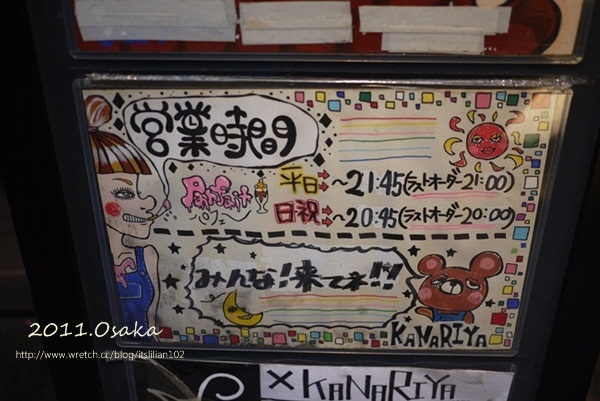 営業時間
Parfait
平日→〜21:45(ラストオーダー21:00)
日祝→〜20:45(ラストオーダー20:00)
みんな!来てネ!!!
KANARIYA
2011.Osaka
http://www.wretch.cc/blog/itslilian102
×KANARIYA